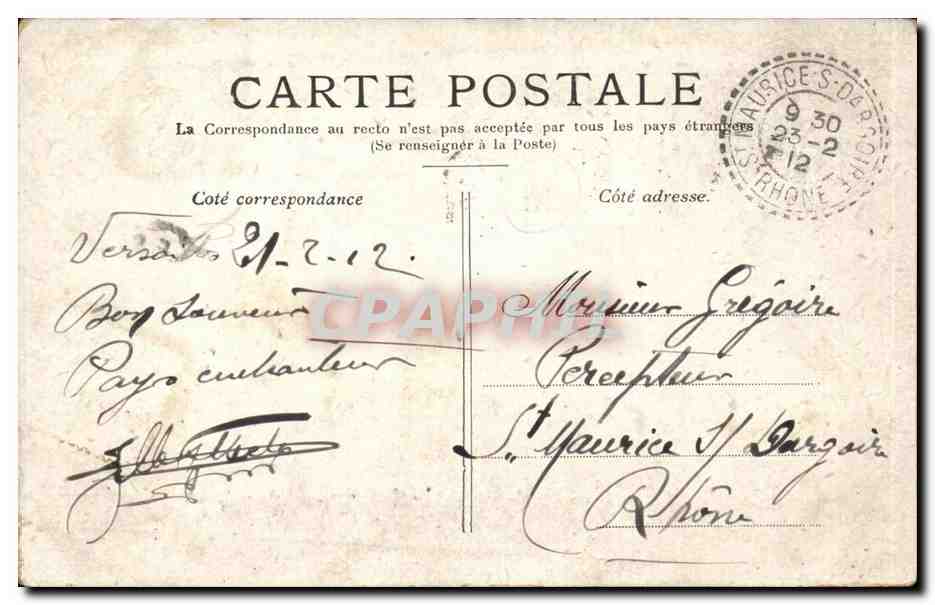 CARTE POSTALE
La Correspondance au recto n'est pas acceptée par tous les pays étrangers
(Se renseigner à la Poste)
ST MAURICE-S-DARGOIRE
9 30
23-2
12
RHONE
Coté correspondance
Côté adresse.
Versailles 21-2-12.
Bon souvenir
Pays enchanteur
CPAPHIL
Monsieur Grégoire
Percepteur
St Maurice S/ Dargoire
Rhône